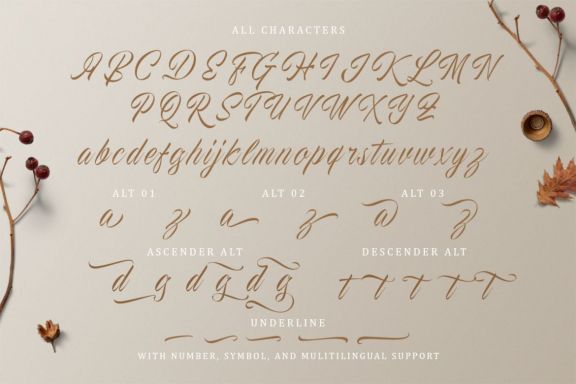 ALL CHARACTERS
A B C D E F G H I J K L M N
P Q R S T U V W X Y Z
a b c d e f g h i j k l m n o p q r s t u v w x y z
ALT 01 ALT 02 ALT 03
a z a z a z
ASCENDER ALT DESCENDER ALT
d g d g d g t t t t t
UNDERLINE
WITH NUMBER, SYMBOL, AND MULITILINGUAL SUPPORT